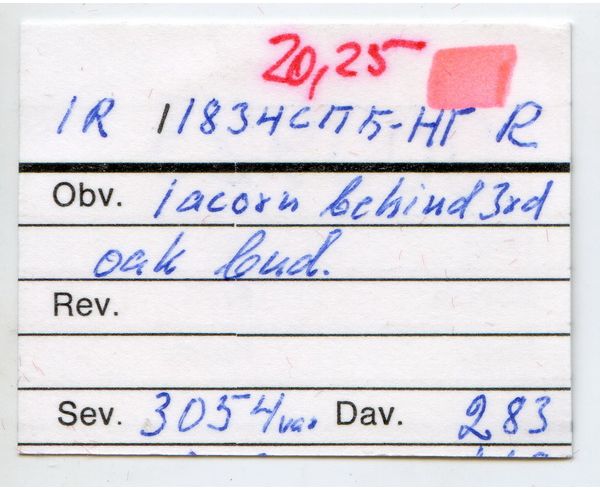 20,25
1R 11834СПБ-НГ R
Obv. 1 acorn behind 3rd
oak bud.
Rev.
Sev. 3054 var Dav. 283